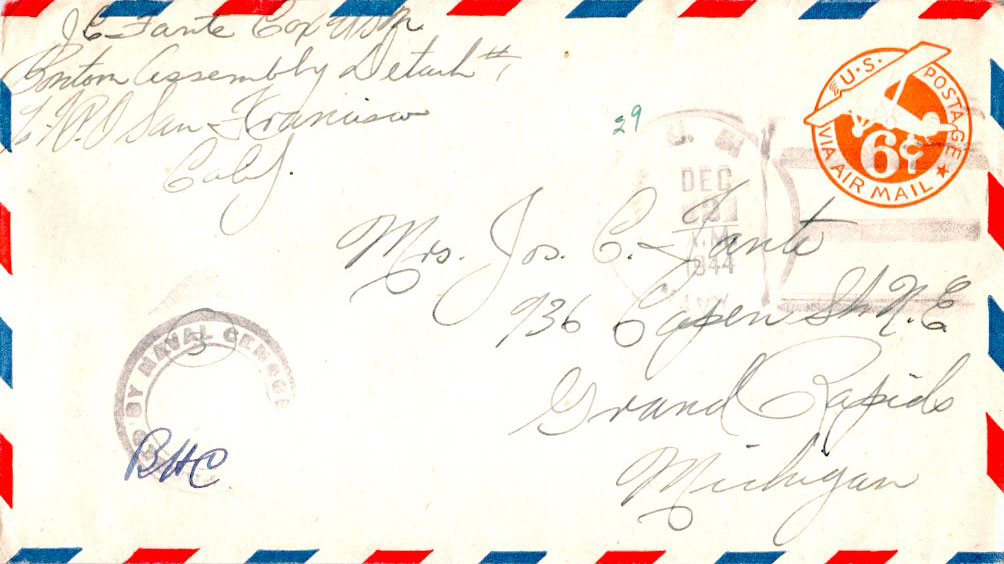 J C Fante Cox USN
Ponton Assembly Detach #1
F.P.O San Francisco
Calif.
29
U.S. POSTAGE
6¢
VIA AIR MAIL
DEC
1944
Mrs. Jos. C. Fante
936 Capen St. N.E
Grand Rapids
Michigan
BY NAVAL CENSOR
3
BHC